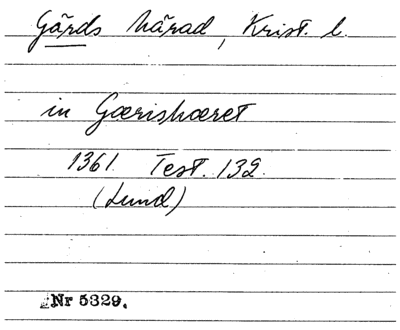 Gärds härad, Krist. l.
in Gærishæret
1361. Test. 132.
(Lund)
Nr 5329.